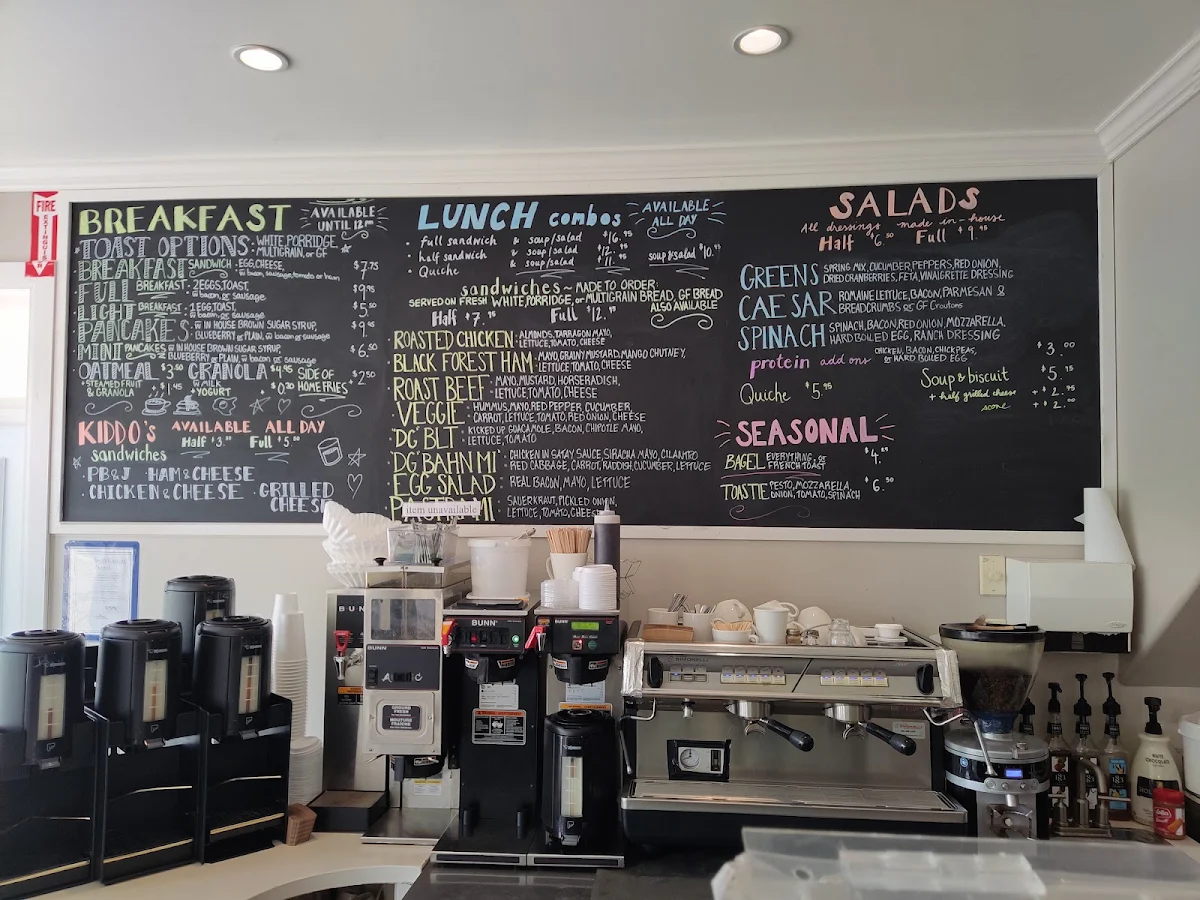 FIRE
EXTINGUISHER
BREAKFAST
AVAILABLE
UNTIL 12PM
TOAST OPTIONS: WHITE, PORRIDGE,
MULTIGRAIN, or GF
BREAKFAST SANDWICH · EGG, CHEESE,
w bacon, sausage, tomato or ham
$7.75
FULL BREAKFAST · 2 EGGS, TOAST,
w bacon, or sausage
$9.95
LIGHT BREAKFAST · 1 EGG, TOAST,
w bacon, or sausage
$5.50
PANCAKES w IN HOUSE BROWN SUGAR SYRUP,
BLUEBERRY or PLAIN, w bacon or sausage
$9.95
MINI PANCAKES w IN HOUSE BROWN SUGAR SYRUP,
BLUEBERRY or PLAIN, w bacon or sausage
$6.50
OATMEAL $3.50 GRANOLA $4.95 SIDE OF
HOME FRIES $2.50
+ STEAMED FRUIT
& GRANOLA + $1.45
w MILK
+ YOGURT + $0.70
KIDDO'S AVAILABLE ALL DAY
sandwiches Half $3.50 Full $5.50
· PB&J · HAM & CHEESE
· CHICKEN & CHEESE · GRILLED
CHEESE
LUNCH combos
AVAILABLE
ALL DAY
· full sandwich & soup/salad $16.95
· half sandwich & soup/salad $12.95
· Quiche & soup/salad
soup & salad $10.95
sandwiches ~ MADE TO ORDER
SERVED ON FRESH WHITE, PORRIDGE, or MULTIGRAIN BREAD, GF BREAD
ALSO AVAILABLE
Half $7.95 Full $12.95
ROASTED CHICKEN · ALMONDS, TARRAGON MAYO,
LETTUCE, TOMATO, CHEESE
BLACK FOREST HAM · MAYO, GRAINY MUSTARD, MANGO CHUTNEY,
LETTUCE, TOMATO, CHEESE
ROAST BEEF · MAYO, MUSTARD, HORSERADISH,
LETTUCE, TOMATO, CHEESE
VEGGIE · HUMMUS, MAYO, RED PEPPER, CUCUMBER
CARROT, LETTUCE, TOMATO, RED ONION, CHEESE
DG'BLT · KICKED UP GUACAMOLE, BACON, CHIPOTLE MAYO,
LETTUCE, TOMATO
DG'BAHN MI' · CHICKEN IN SATAY SAUCE, SIRACHA MAYO, CILANTRO
RED CABBAGE, CARROT, RADDISH, CUCUMBER, LETTUCE
EGG SALAD · REAL BACON, MAYO, LETTUCE
PASTRAMI · SAUERKRAUT, PICKLED ONION,
LETTUCE, TOMATO, CHEESE
item unavailable
SALADS
All dressings made in-house
Half $6.50 Full $9.95
GREENS SPRING MIX, CUCUMBER, PEPPERS, RED ONION,
DRIED CRANBERRIES, FETA, VINAIGRETTE DRESSING
CAESAR ROMAINE LETTUCE, BACON, PARMESAN &
BREADCRUMBS or GF Croutons
SPINACH SPINACH, BACON, RED ONION, MOZZARELLA,
HARD BOILED EGG, RANCH DRESSING
protein add ons CHICKEN, BACON, CHICKPEAS,
or HARD BOILED EGG
$3.00
Quiche $5.95
Soup & biscuit $5.75
+ half grilled cheese + $2.95
scone + $2.00
SEASONAL
BAGEL EVERYTHING, or
FRENCH TOAST
TOASTIE PESTO, MOZZARELLA,
ONION, TOMATO, SPINACH
$6.50
BUNN
BUNN
BUNN
BUNN
SIMONELLI
WHITE
CHOCOLATE